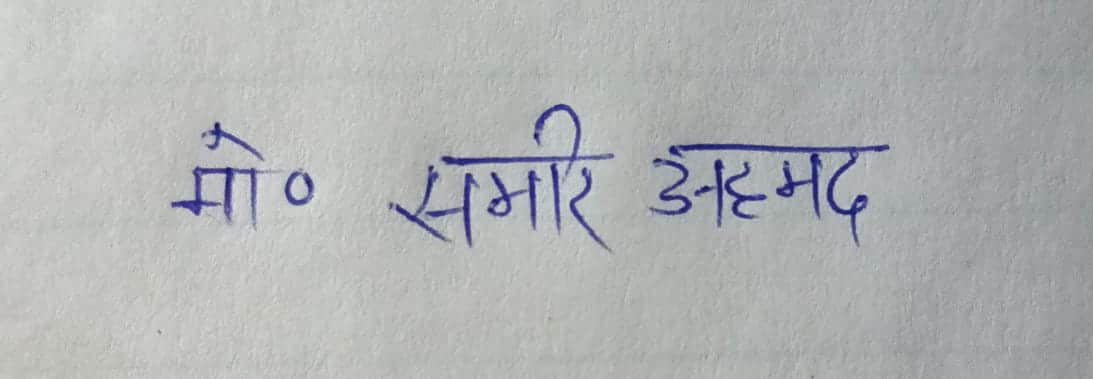 मो० समीर अहमद